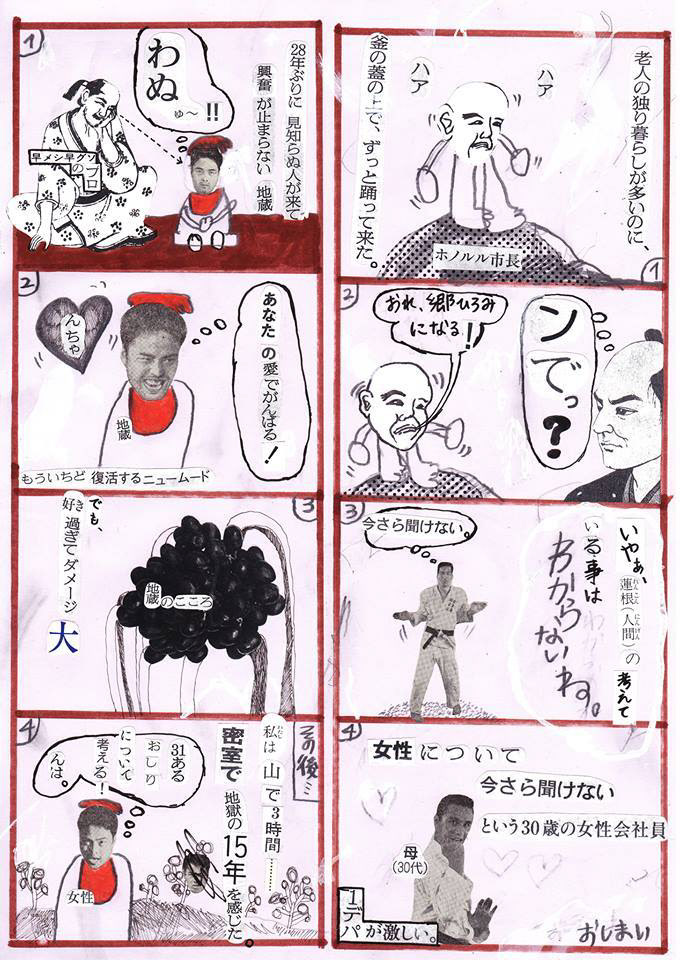 1
老人の独り暮らしが多いのに、
ハア
ハア
釜の蓋の上で、ずっと踊って来た。
ホノルル市長
2
ンでっ?
おれ、郷ひろみ
になる!
3
いやあ、
蓮根(人間)の
れんこん にんげん
考えて
いる事は
わからないね。
今さら聞けない。
4
女性について
今さら聞けない
という30歳の女性会社員
母
(30代)
1デパが激しい。
おしまい
1
28年ぶりに 見知らぬ人が来て
興奮 が止まらない 地蔵
わぬ
ゅ〜!!
早メシ早グソ
のプロ
2
あなた の愛でがんばる!
んちゃ
地蔵
もういちど 復活するニュームード
3
でも、
好き過ぎてダメージ
大
地蔵のこころ
4
その後…
私は 山で3時間……
わたし
密室で
地獄の15年を感じた。
31ある
おしり
について
考える!
んは。
女性